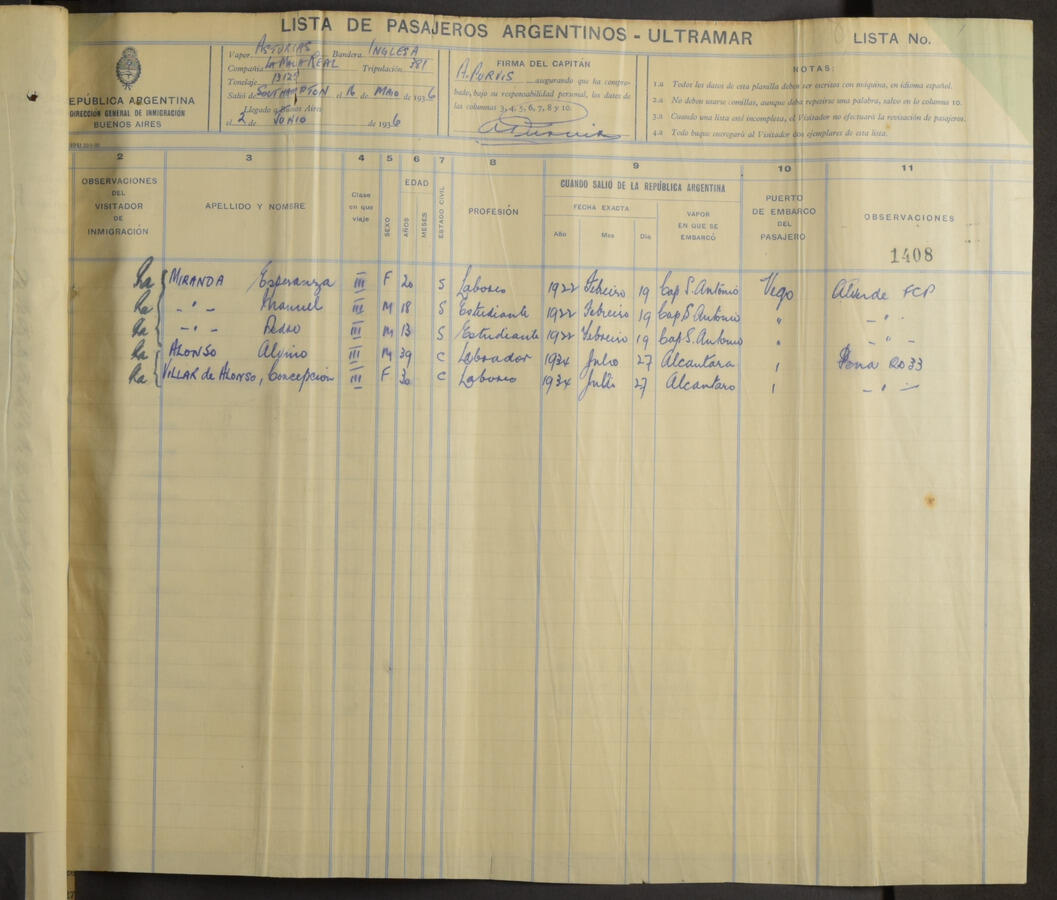 LISTA DE PASAJEROS ARGENTINOS - ULTRAMAR
LISTA No.
REPÚBLICA ARGENTINA
DIRECCIÓN GENERAL DE INMIGRACIÓN
BUENOS AIRES
Vapor ASTURIAS Bandera INGLESA
Compañía LA MALA REAL Tripulación 381
Tonelaje 13129
Salió de SOUTHAMPTON el 16 de MAIO de 1936
Llegado a Buenos Aires
el 2 de JUNIO de 1936
FIRMA DEL CAPITÁN
A. PURVIS asegurando que ha compro-
bado, bajo su responsabilidad personal, los datos de
las columnas 3, 4, 5, 6, 7, 8 y 10.
A Purvis
NOTAS:
1.a Todos los datos de esta planilla deben ser escritos con máquina, en idioma español.
2.a No deben usarse comillas, aunque deba repetirse una palabra, salvo en la columna 10.
3.a Cuando una lista esté incompleta, el Visitador no efectuará la revisación de pasajeros.
4.a Todo buque entregará al Visitador dos ejemplares de esta lista.
2 3 4 5 6 7 8 9 10 11
OBSERVACIONES DEL VISITADOR DE INMIGRACIÓN
APELLIDO Y NOMBRE
Clase en que viaje
SEXO
EDAD
AÑOS
MESES
ESTADO CIVIL
PROFESIÓN
CUANDO SALIÓ DE LA REPÚBLICA ARGENTINA
FECHA EXACTA
Año Mes Día
VAPOR EN QUE SE EMBARCÓ
PUERTO DE EMBARCO DEL PASAJERO
OBSERVACIONES
1408
Ra MIRANDA Esperanza III F 20 S Labores 1922 Febreiro 19 Cap S. Antonio Vigo FCP
Ra - " - Manuel III M 18 S Estudiante 1922 Febreiro 19 Cap S Antonio " - " -
Ra - " - Pedro III M 13 S Estudiante 1922 Febreiro 19 Cap S. Antonio " - " -
Ra ALONSO Alvino III M 39 C Labrador 1934 Julio 27 Alcantara " 2033
Ra VILLAR de ALONSO, Concepcion III F 30 C Labores 1934 Julio 27 Alcantara " - " -